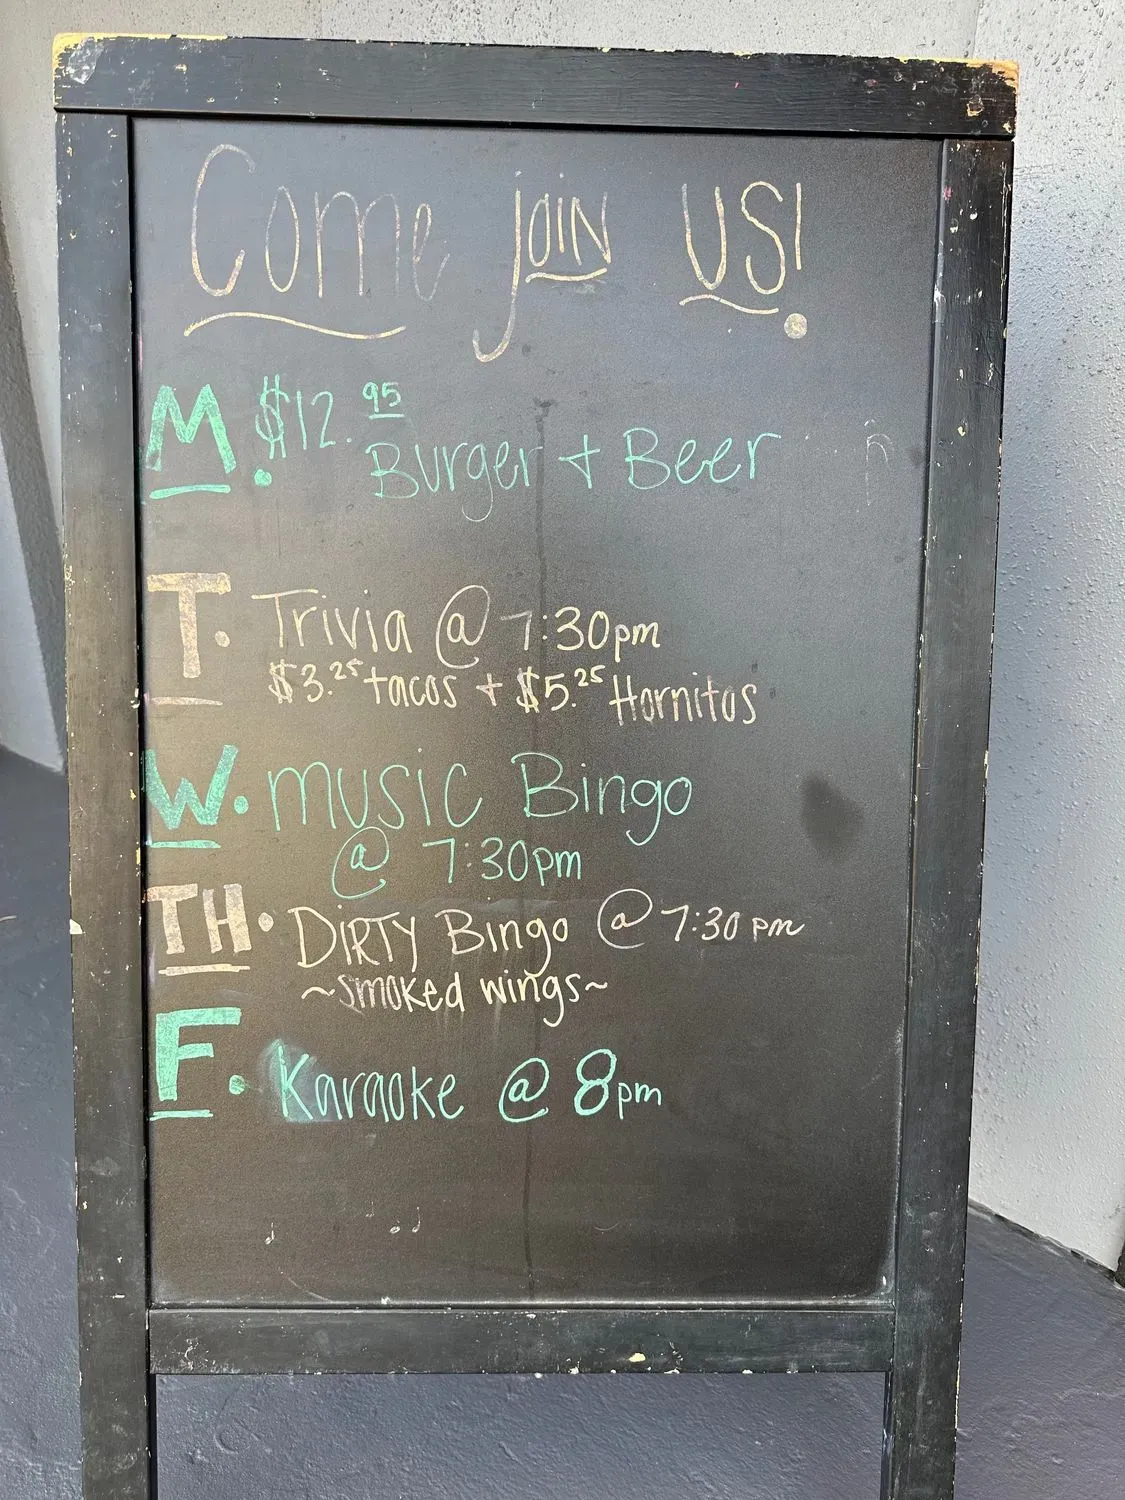 Come join US!
M. $12.95 Burger + Beer
T. Trivia @ 7:30pm
$3.25 tacos + $5.25 Hornitos
W. music Bingo
@ 7:30pm
TH. DiRTY Bingo @ 7:30 pm
~smoked wings~
F. Karaoke @ 8pm